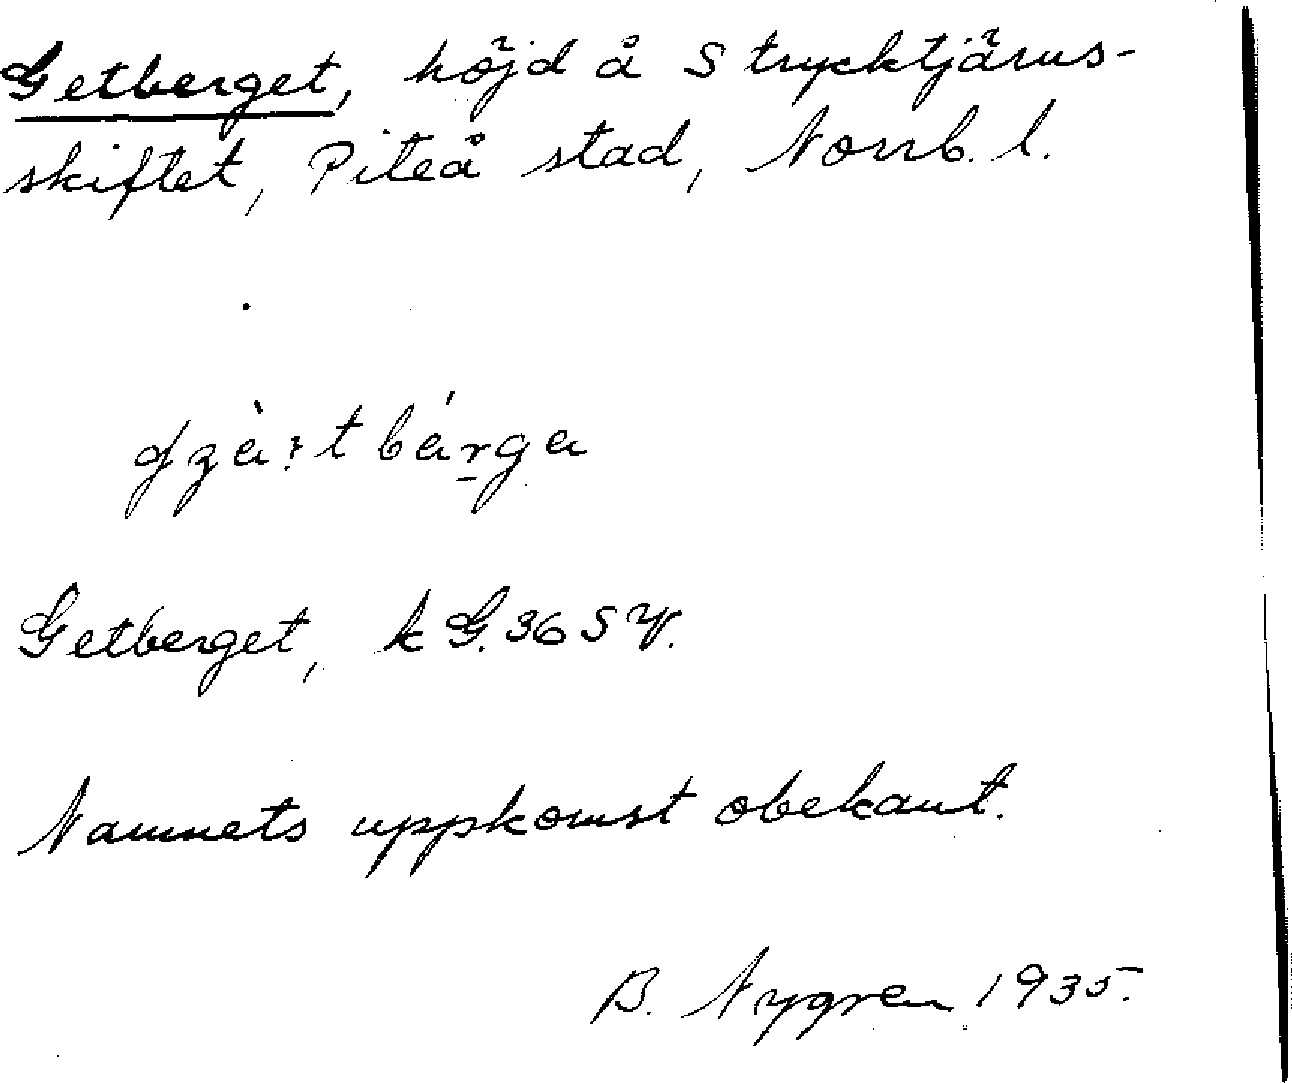 Getberget, höjd å Strycktjärns-
skiftet, Piteå stad, Norrb. l.
Getberget, k G. 36 S V.
Namnets uppkomst obekant.
B. Nygren 1935.